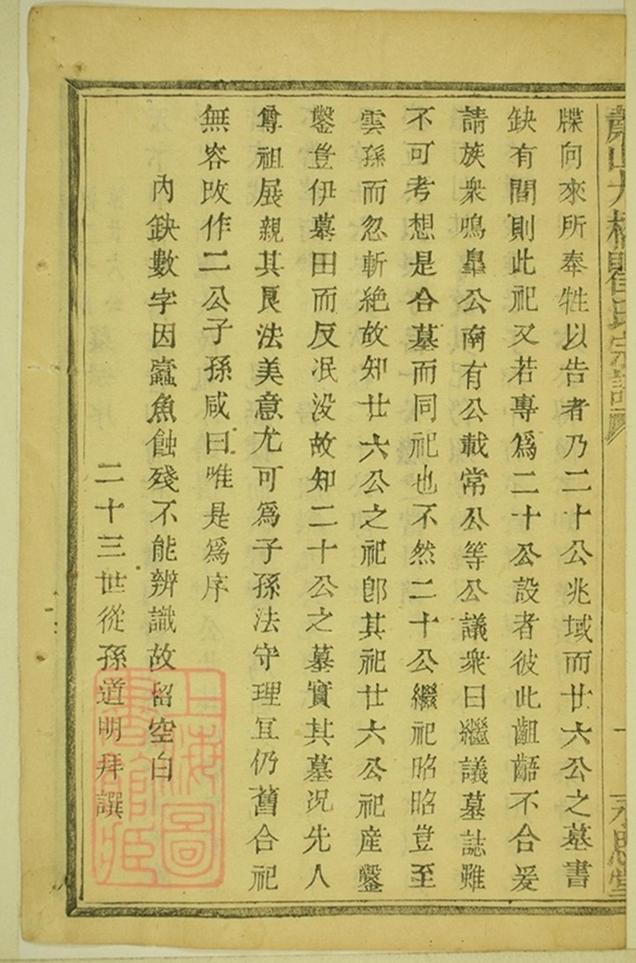 蕭山大橋瞿氏宗譜
一
永思堂
牒向來所奉牲以告者乃二十公兆域而廿六公之墓書
缺有間則此祀又若專爲二十公設者彼此齟齬不合爰
請族衆鳴臯公南有公載常公等公議衆曰繼議墓誌雖
不可考想是合墓而同祀也不然二十公繼祀昭昭豈至
雲孫而忽斬絶故知廿六公之祀卽其祀廿六公祀產鑿
鑿豈伊墓田而反泯没故知二十公之墓實其墓况先人
尊祖展親其良法美意尤可爲子孫法守理宜仍舊合祀
無容改作二公子孫咸曰唯是爲序
內缺數字因蠹魚蝕殘不能辨識故留空白
二十三世從孫道明拜譔
上海圖書館藏